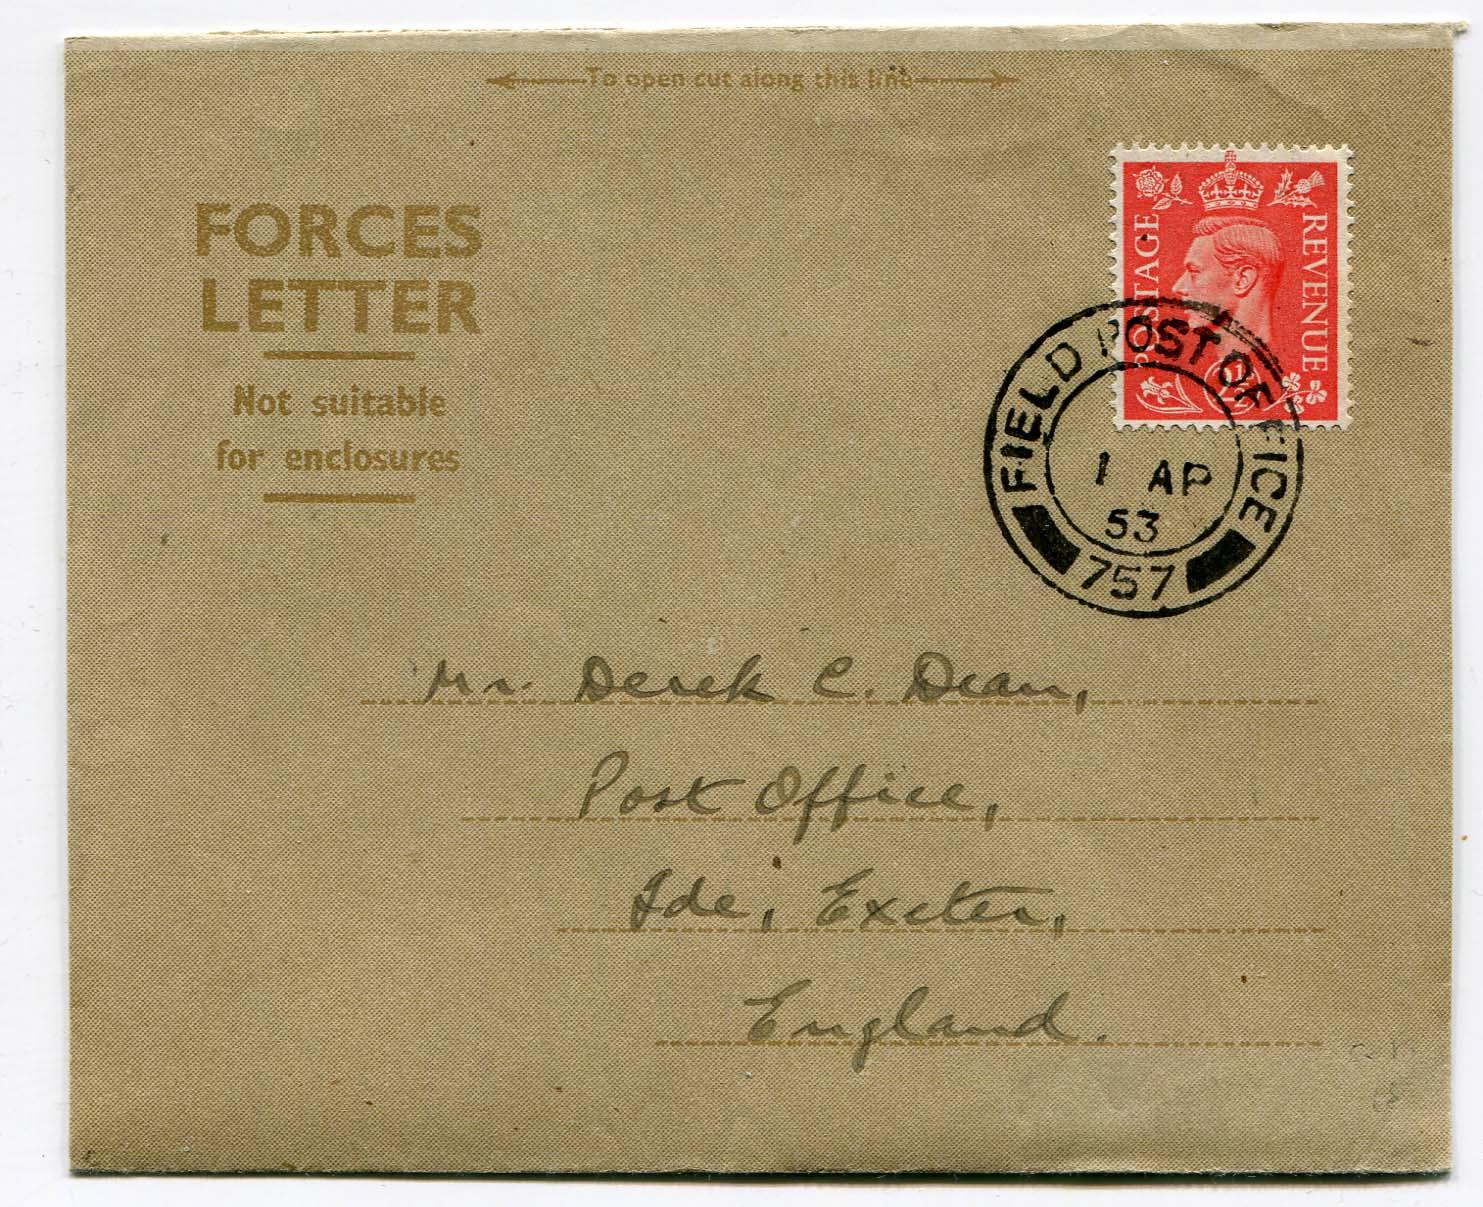 To open cut along this line
FORCES
LETTER
Not suitable
for enclosures
POSTAGE
REVENUE
2½
FIELD POST OFFICE
1 AP
53
757
Mr. Derek C. Dean,
Post Office,
Ide, Exeter,
England.